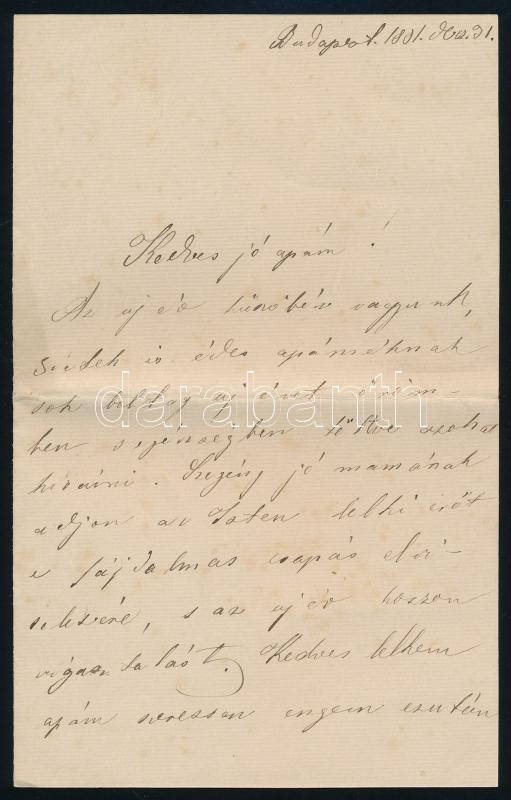 Budapest. 1881. dec. 31.
Kedves jó apám!
Az uj év küszöbén vagyunk,
sietek is édes apáméknak
sok boldog uj évet öröm-
ben s egészségben töltve azokat
kivánni. Szegény jó mamának
adjon az Isten lelki erőt
e fájdalmas csapás elvi-
selésére, s az uj év hozzon
vigasztalást. Kedves lelkem
apám szeressen engem ezután
darabanth